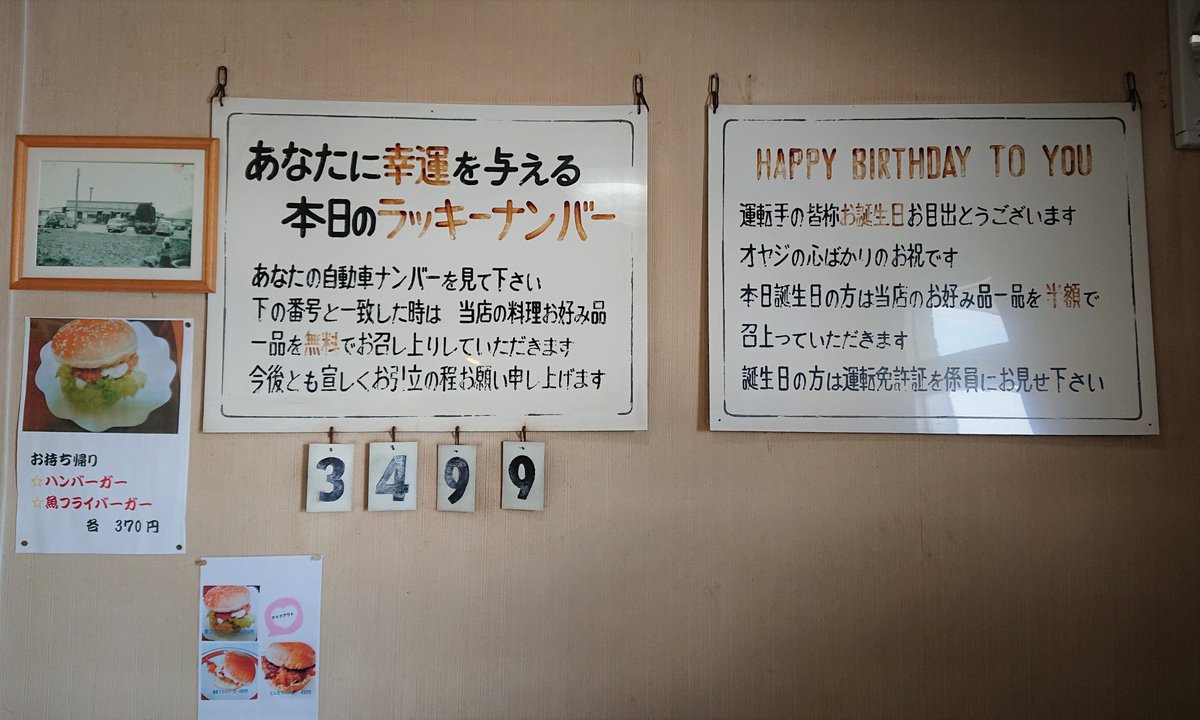 あなたに幸運を与える
本日のラッキーナンバー
あなたの自動車ナンバーを見て下さい
下の番号と一致した時は 当店の料理お好み品
一品を無料でお召し上りしていただきます
今後とも宜しくお引立の程お願い申し上げます
3 4 9 9
HAPPY BIRTHDAY TO YOU
運転手の皆称お誕生日お目出とうございます
オヤジの心ばかりのお祝です
本日誕生日の方は当店のお好み品一品を半額で
召上っていただきます
誕生日の方は運転免許証を係員にお見せ下さい
お持ち帰り
☆ハンバーガー
☆魚フライバーガー
各 370円
テイクアウト